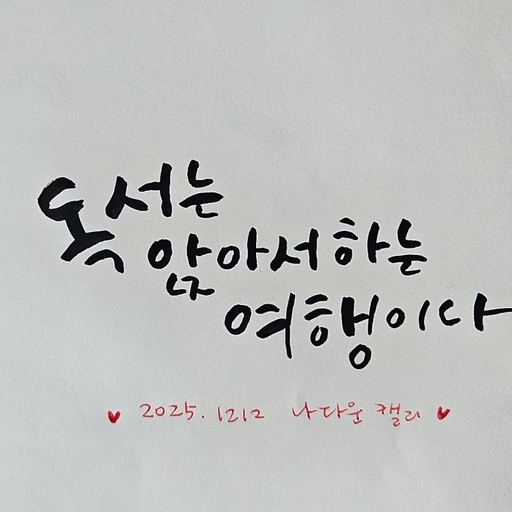 독서는
앉아서 하는
여행이다
♥ 2025. 1212 나다운 캘리 ♥